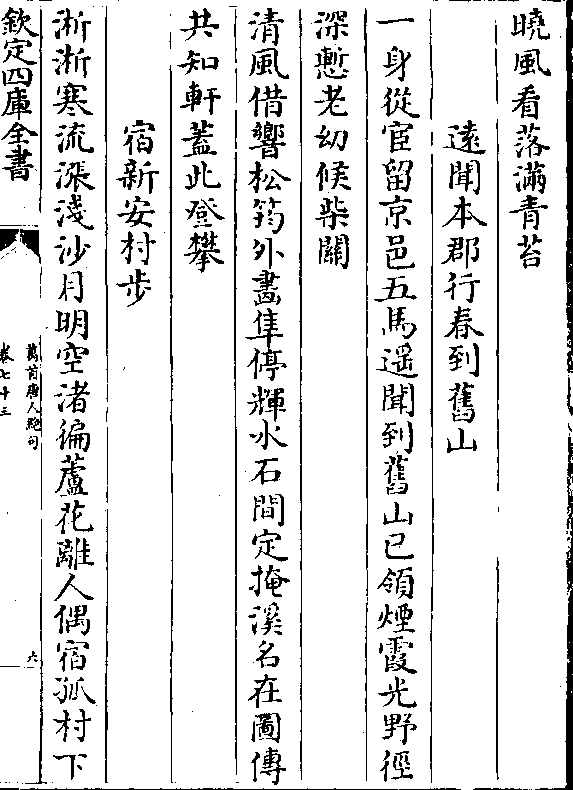 曉風看落滿青苔
遠聞本郡行春到舊山
一身從宦留京邑五馬遥聞到舊山已領煙霞光野徑
深慙老幼候柴關
清風借響松筠外畫隼停輝水石間定掩溪名在圖傳
共知軒蓋此登攀
宿新安村步
淅淅寒流漲淺沙月明空渚徧蘆花離人偶宿孤村下
欽定四庫全書
萬首唐人絶句
卷七十三
六